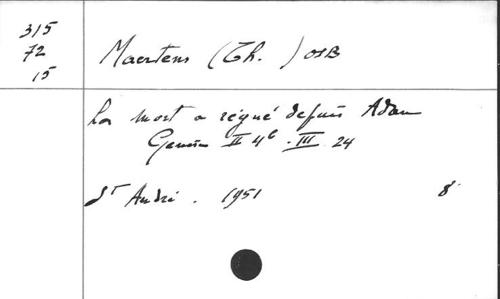 315
72
15
Maertens (Th.) OSB
La mort a régné depuis Adam
Genèse II 4b - III 24
St André. 1951 8°